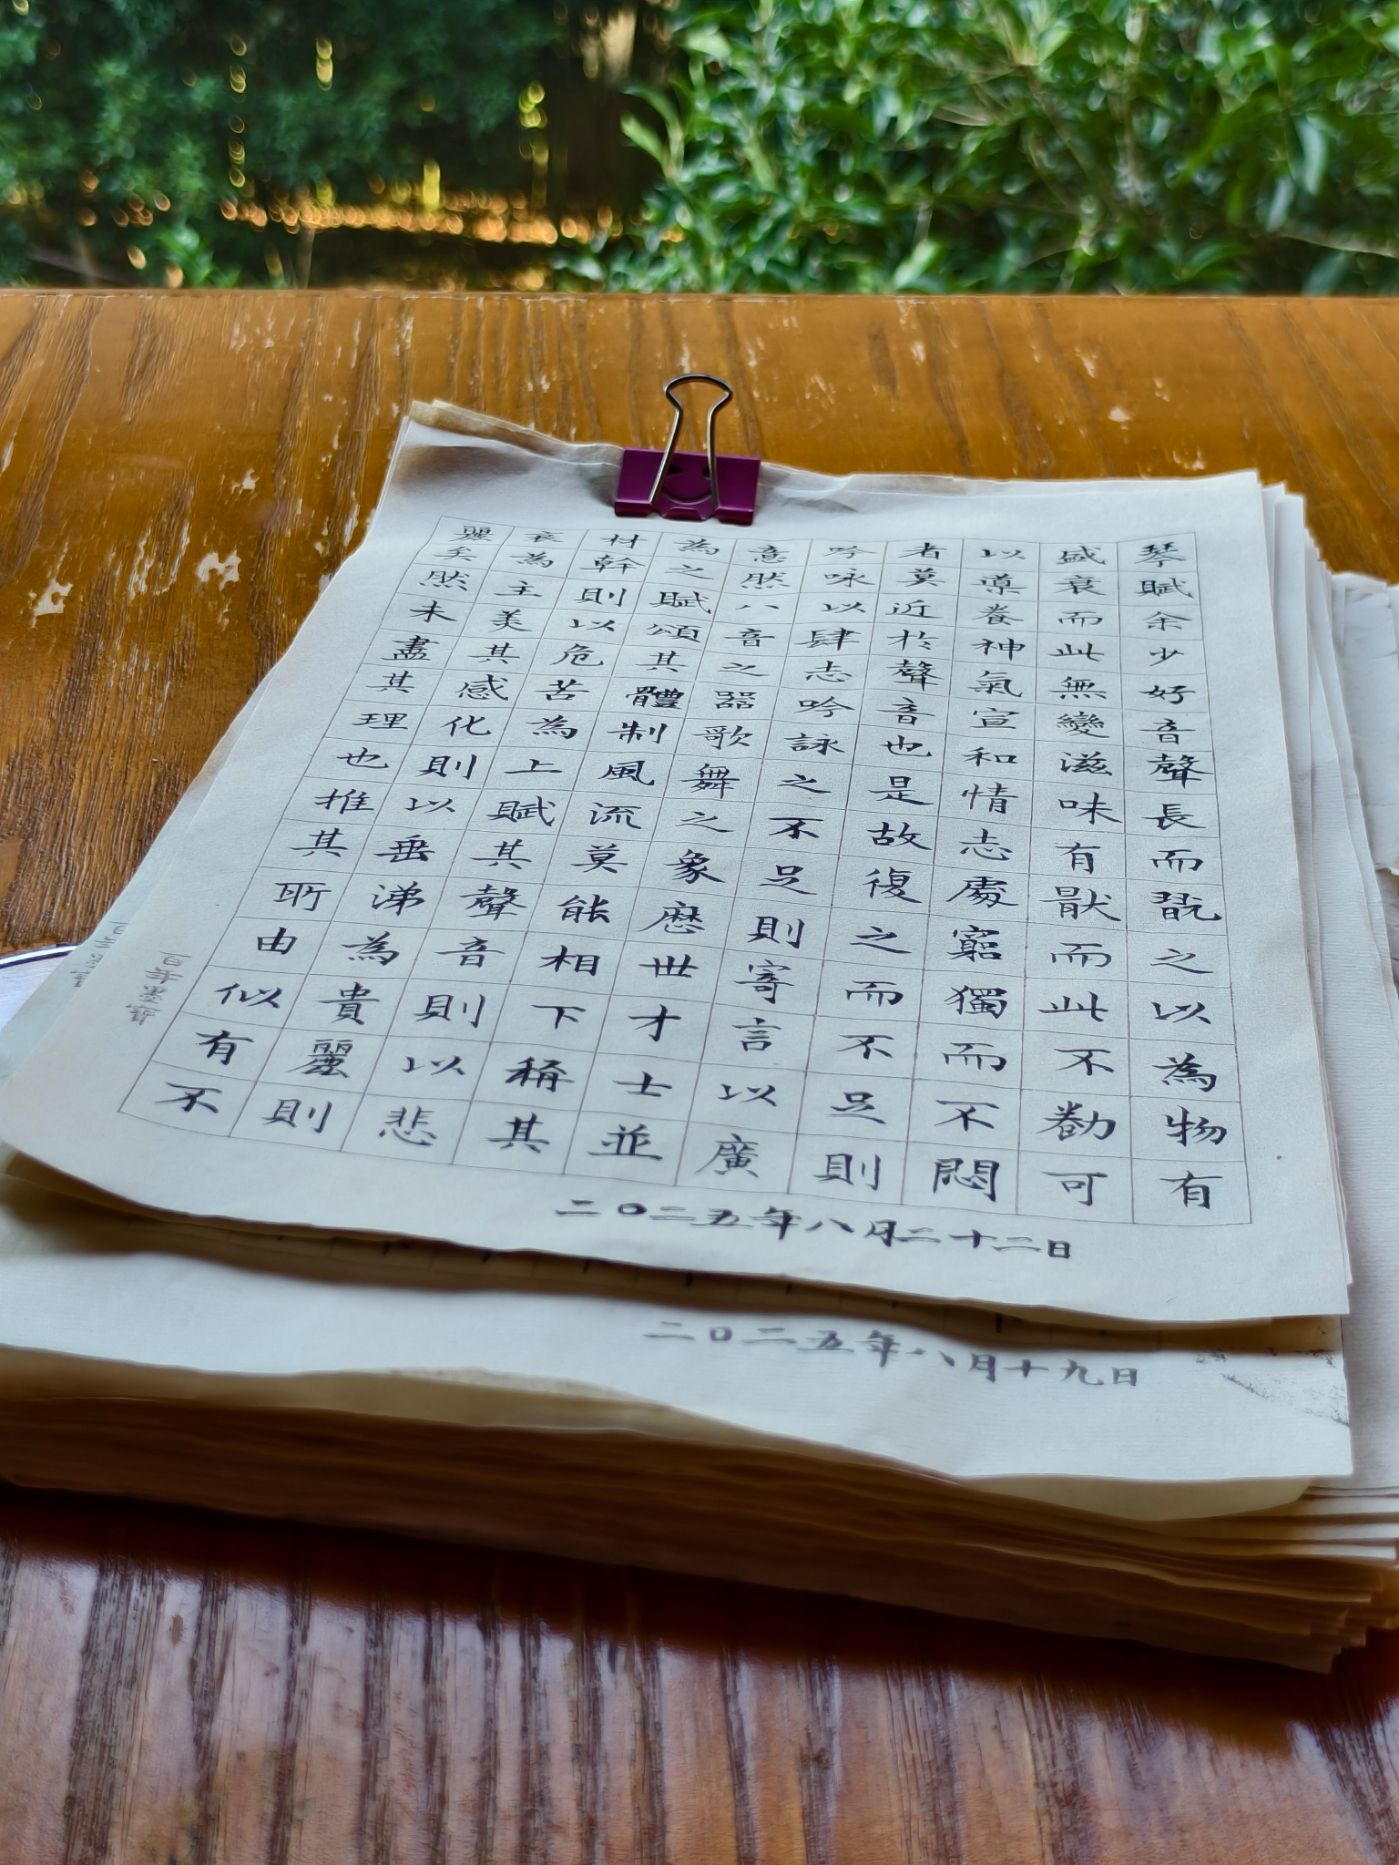 琴賦余少好音聲長而翫之以為物有
盛衰而此無變滋味有猒而此不勌可
以導養神氣宣和情志處窮獨而不悶
者莫近於聲音也是故復之而不足則
吟咏以肆志吟詠之不足則寄言以廣
意然八音之器歌舞之象歷世才士並
為之賦頌其體制風流莫能相下稱其
材幹則以危苦為上賦其聲音則以悲
哀為主美其感化則以垂涕為貴麗則
麗矣然未盡其理也推其所由似有不
百年墨寶
二〇二五年八月二十二日
二〇二五年八月十九日